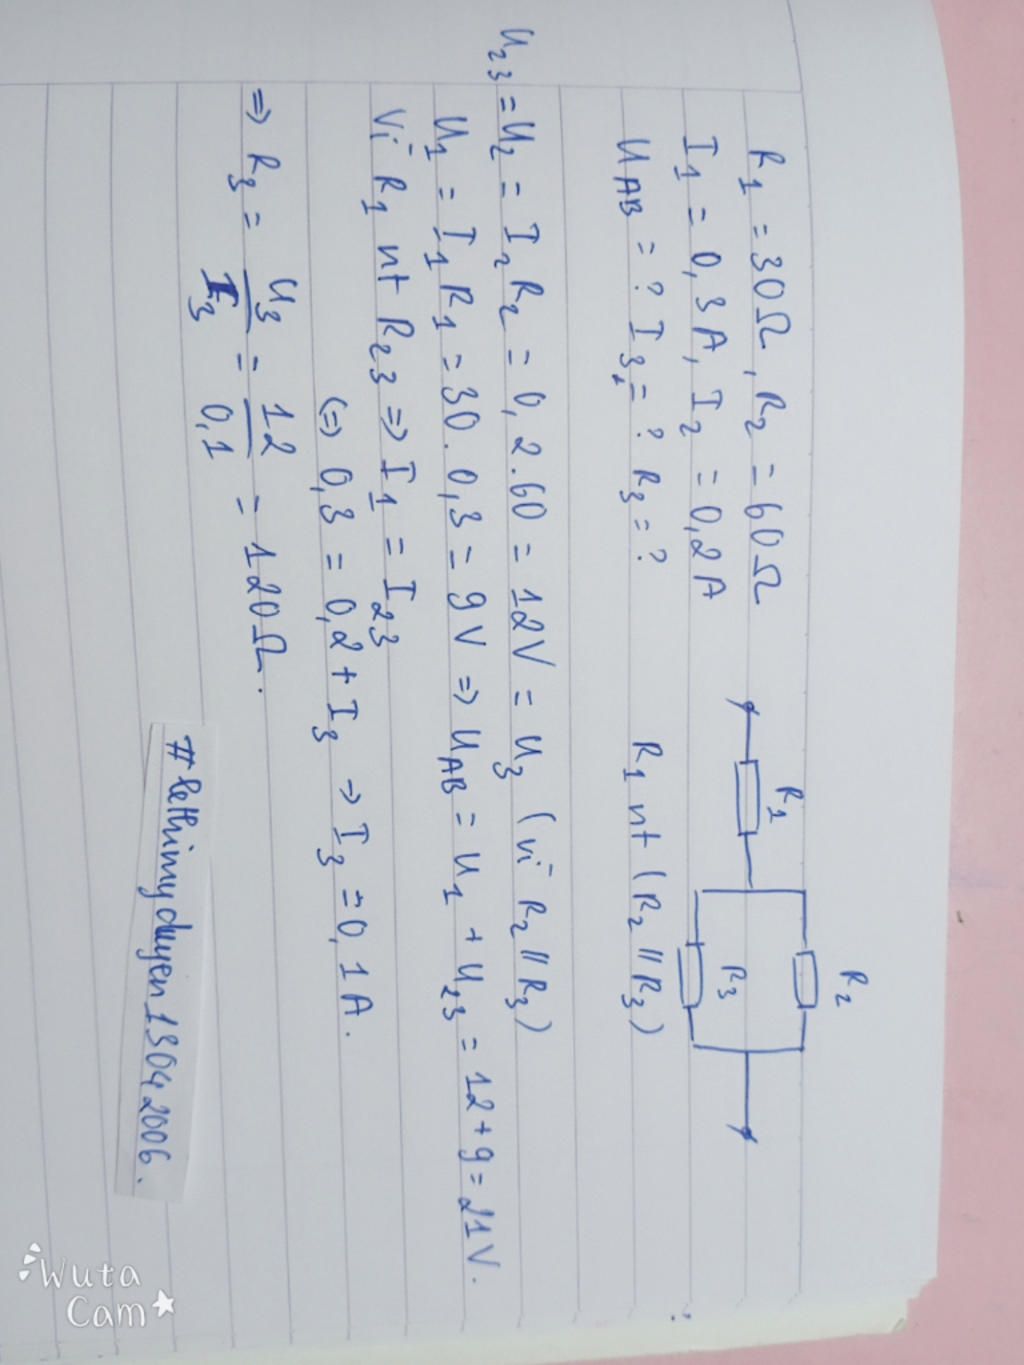 R1 = 30Ω, R2 = 60Ω
I1 = 0,3A, I2 = 0,2A
UAB = ? I3 = ? R3 = ?
R1
R2
R3
R1 nt (R2 // R3)
U23 = U2 = I2 R2 = 0,2.60 = 12V = U3 (vì R2 // R3)
U1 = I1 R1 = 30.0,3 = 9V => UAB = U1 + U23 = 12+9 = 21V.
Vì R1 nt R23 => I1 = I23
(=) 0,3 = 0,2 + I3 => I3 = 0,1A.
=> R3 = U3/I3 = 12/0,1 = 120Ω.
#lethimyduyen13042006.
Wuta
Cam